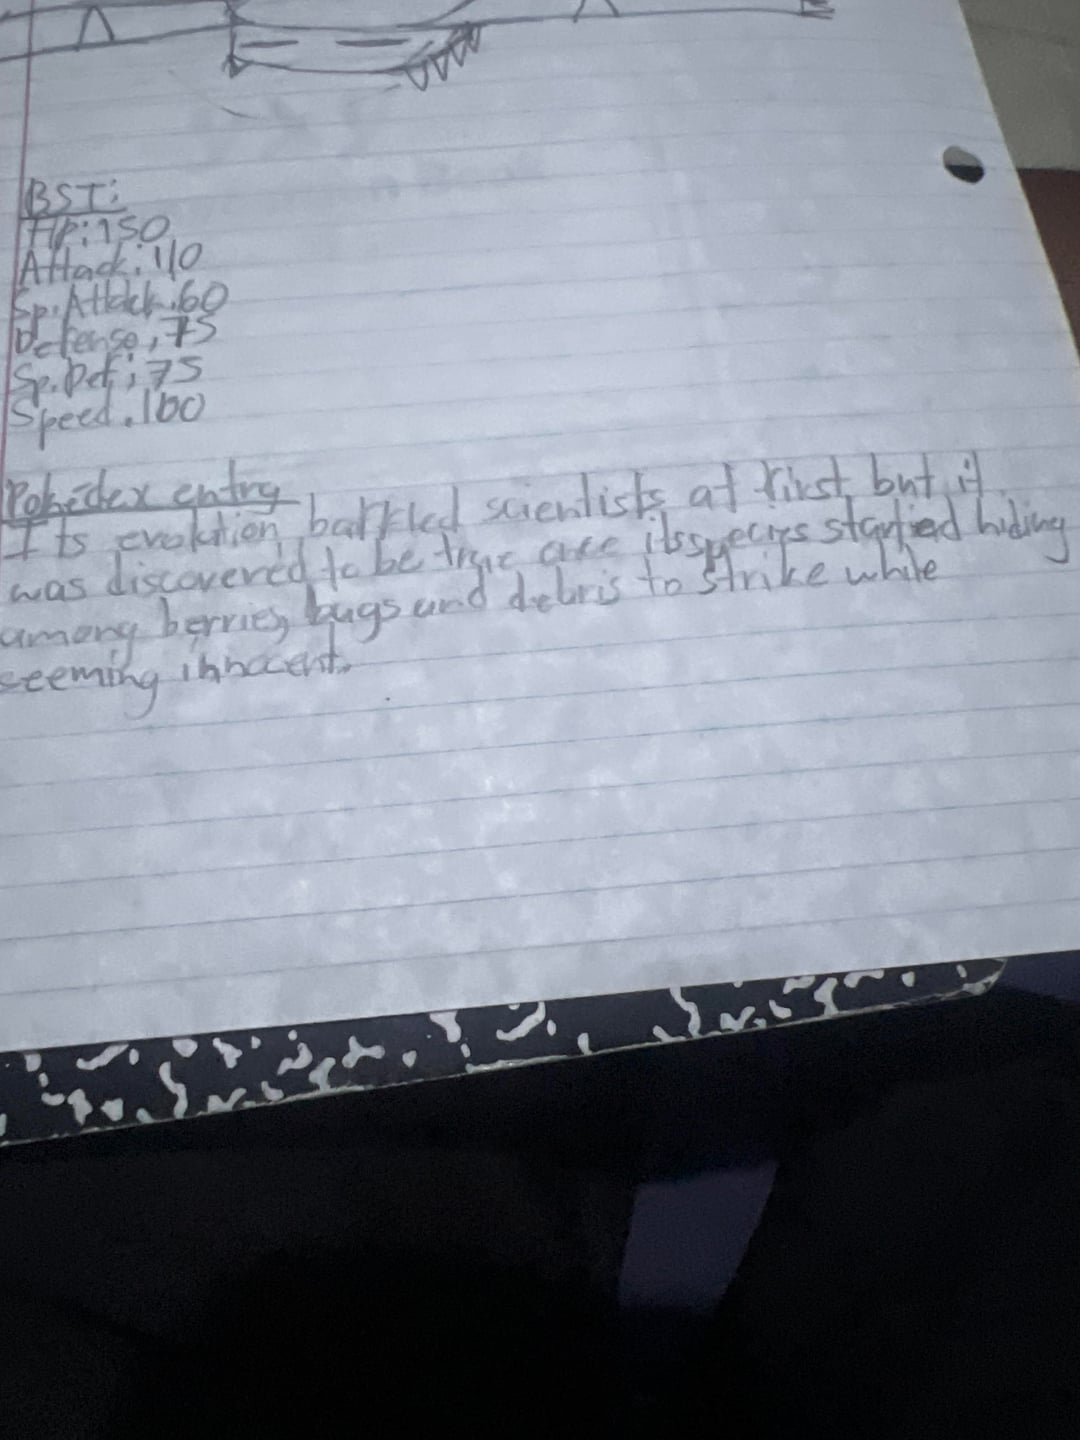 BST:
Hp: 150
Attack: 110
Sp. Attack. 60
Defense, 75
Sp. Def; 75
Speed. 100
Pokédex entry
Its evolution baffled scientists at first, but it
was discovered to be true once its species started hiding
among berries, bugs and debris to strike while
seeming innocent.